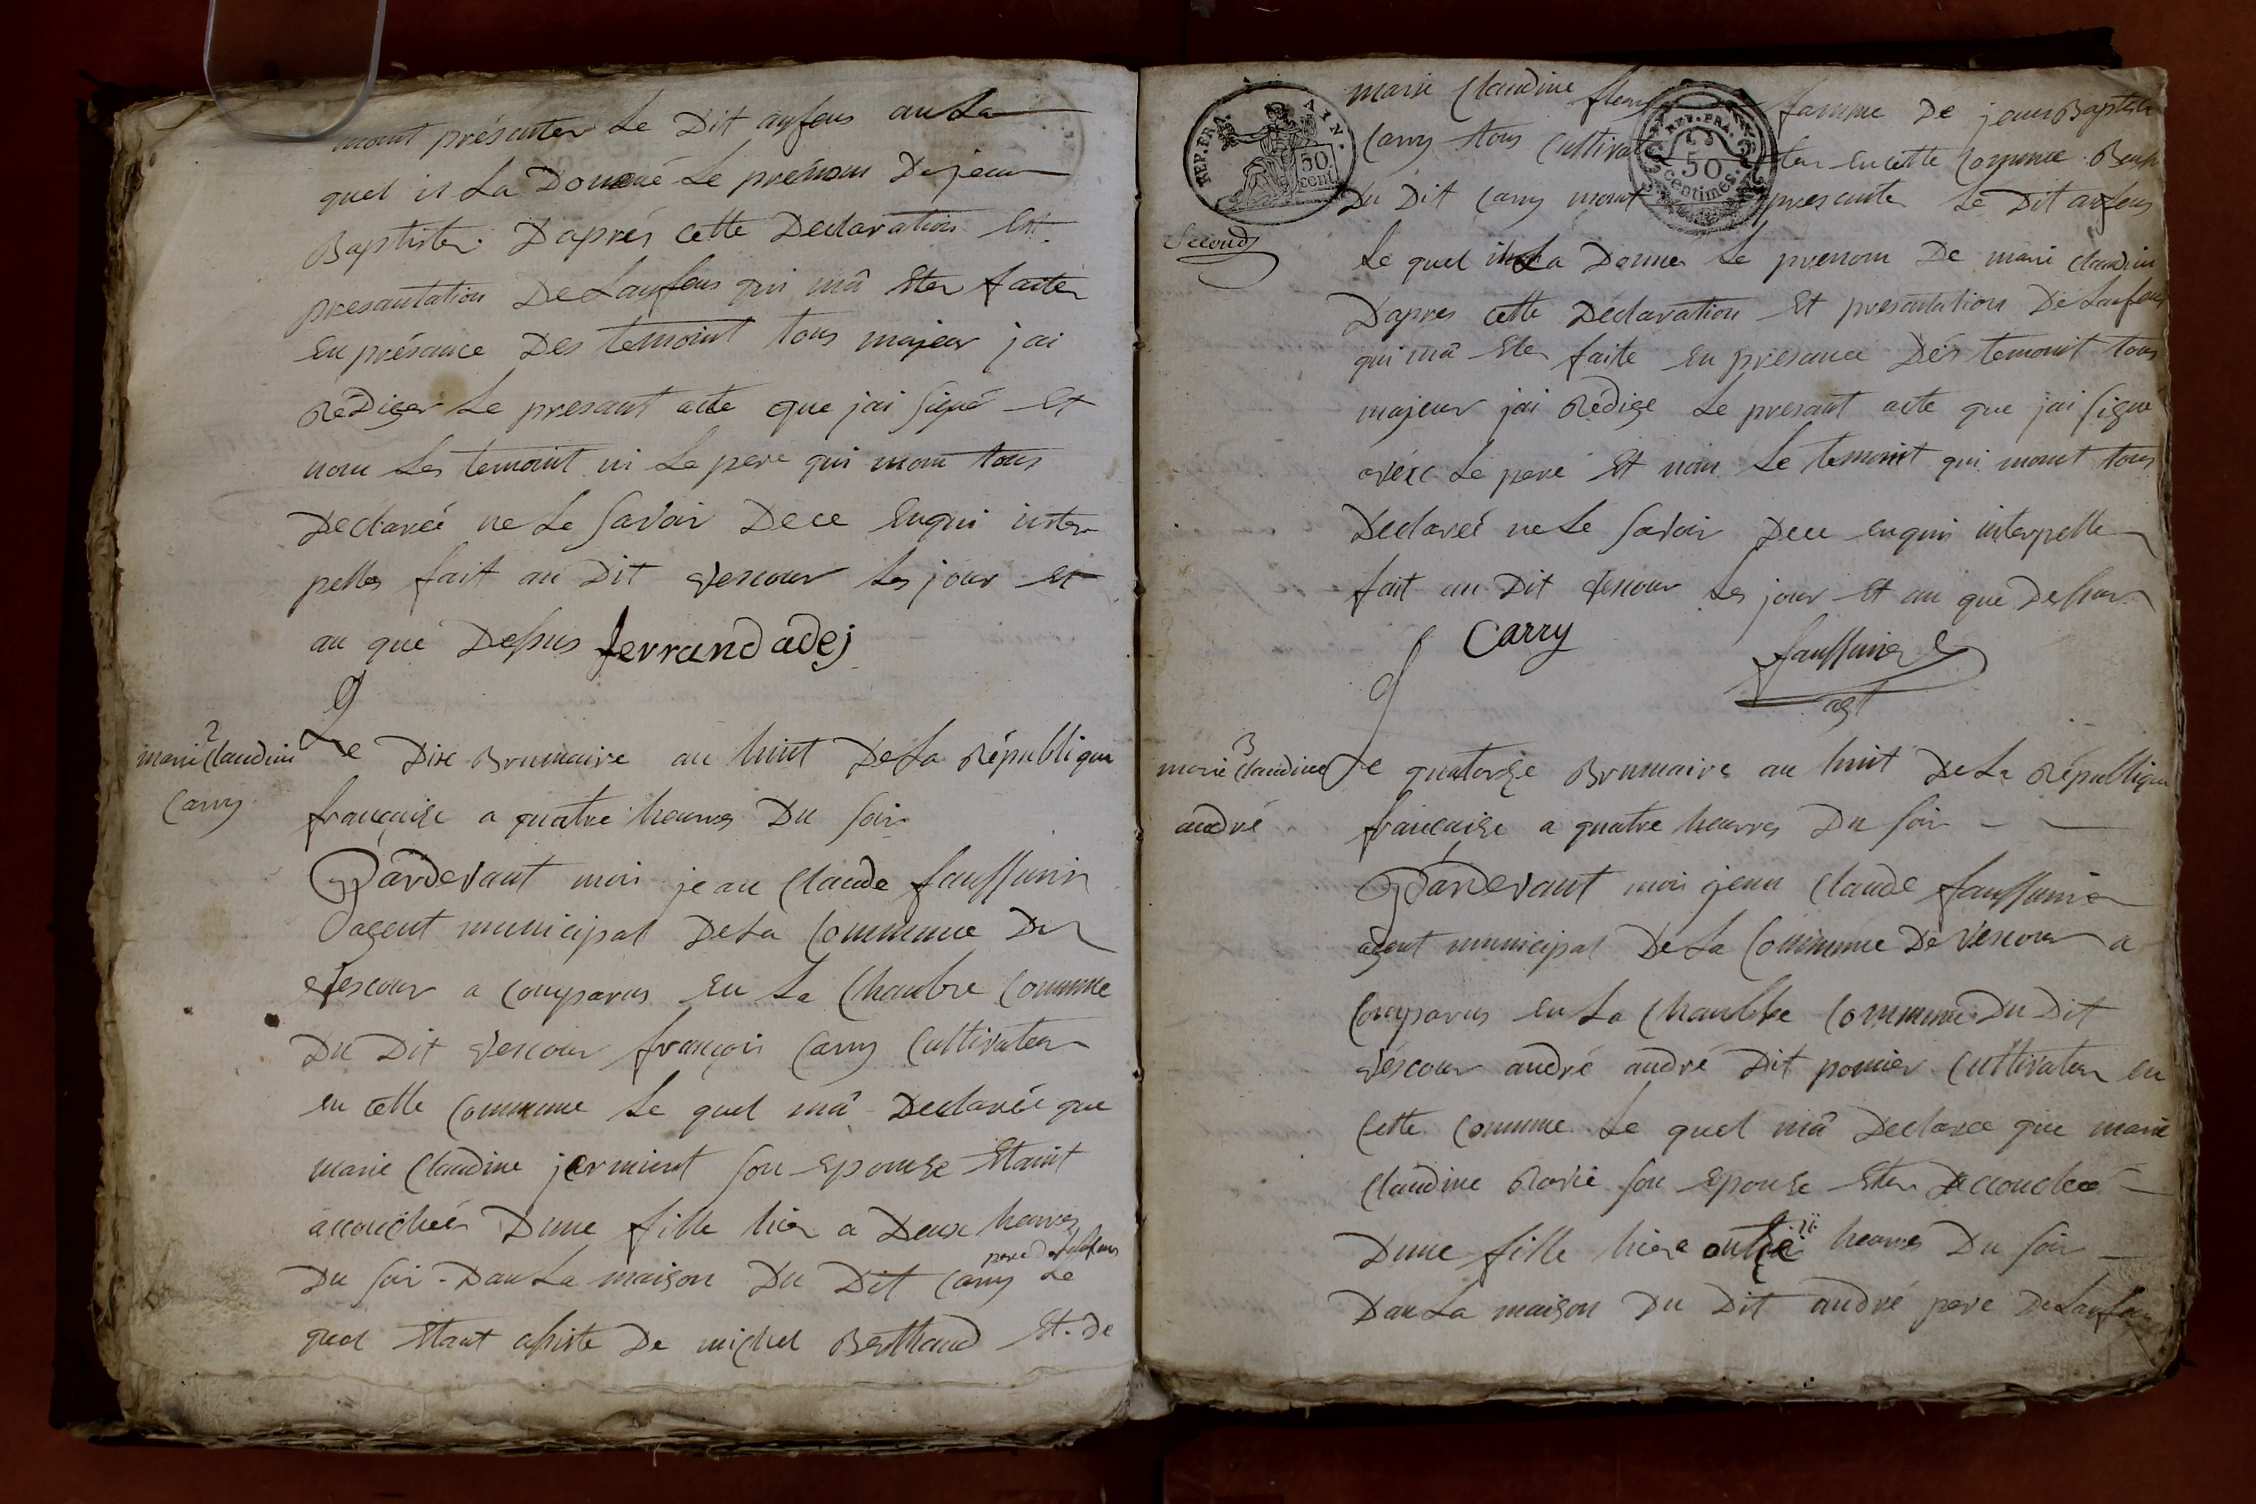 mont présenter Le Dit anfens au La
quel il La Donné Le prénom De jean
Baptister D'aprés cette Declaration Et
presantation De Lanfens qui mâ Eter faiter
En présance Des temoint tous majeur jai
Rédiger Le presant acte que jai signé Et
non Les temoint ni Le pere qui mont tous
Declareé ne Le savoir De ce Enqui inter
pelles fait au Dit Vescour Les jour Et
an que Dessus ferrand adej
2
marie Claudine
Carry
Le Dix Brumaire an huit De La République
française a quatre heures Du soir
Pardevant moi jean Claude faussurier
agent municipal De La Commune De
Vescour a comparus En La Chambre Commune
Du Dit Vescour françois Carry Cultivateur
en cette Commune Le quel mâ Declareé que
marie Claudine jermient son Epouse Etaint
accouchée Dune fille hier a Deux heures
pere de
Du soir Dan La maison Du Dit Carry Le
quel Etant assiste De michel Berthaud Et De
REP. FRA.
AYN.
50
cent.
REP. FRA.
50
centimes.
marie Claudine fleury famme De jean Baptiste
Carry tous Cultivat ter en cette Commune
Du Dit Carry mont presenter Le Dit anfens
Second
Le quel il La Donner Le prenom De marie Claudine
D'apres cette Declaration Et presentation De Lanfens
qui mâ Eter faite En presance Des temoint tous
majeur jai Rédige Le presant acte que jai signé
avéc Le pere Et non Le temoint qui mont tous
Declareé ne Le savoir De ce enqui interpelle
fait au Dit Vescour Les jour Et an que Dessus
Carry
faussurier
agt
3
marie Claudine
andré
Le quatorze Brumaire an huit De La République
française a quatre heures Du soir
Pardevant moi jean Claude faussurier
agent municipal De La Commune De Vescour a
Comparus en La Chambre Commune Du Dit
Vescour andré andré Dit pomier Cultivateur en
Cette Commune Le quel mâ Declarée que marie
Claudine son Epouse Eter Accouchée
Dune fille hier a heures Du soir
Dan La maison Du Dit andré pere De Lanfens